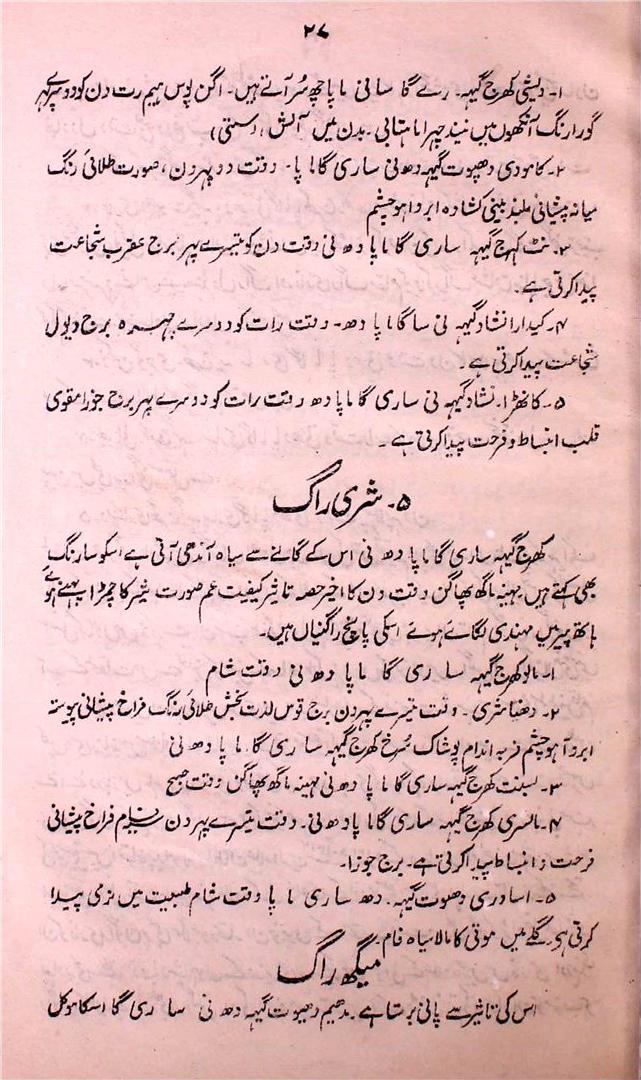 ۲۸
۱۔ دیشی کھرج گیہہ۔ رے گا سا نی ما پا چھ سُر آتے ہیں۔ اگن پوس ہیم رت دن کو دوسرے پہر
گورا رنگ آنکھوں میں نیند چہرا ماہتابی۔ بدن میں آلش (سستی)
۲۔ کامودی دھیوت گیہہ دھ نی سا ری گا ما پا۔ وقت دوپہر دن، صورت طلائی رنگ
میانہ پیشانی بلند بینی کشادہ ابرو آہو چشم
۳۔ نٹ کھرج گیہہ سا ری گا ما پا دھ نی وقت دن کو تیسرے پہر برج عقرب شجاعت
پیدا کرتی ہے۔
۴۔ کیدارا نشاد گیہہ نی سا گا ما پا دھ۔ وقت رات کو دوسرے برج دیول
شجاعت پیدا کرتی ہے۔
۵۔ کانھڑا۔ نشاد گیہہ نی سا ری گا ما پا دھ وقت رات کو دوسرے پہر برج جوزا مقوی
قلب انبساط و فرحت پیدا کرتی ہے۔
۵۔ شری راگ
کھرج گیہہ سا ری گا ما پا دھ نی اس کے گانے سے سیاہ آندھی آتی ہے اسکو سارنگ
بھی کہتے ہیں مہینہ ماگھ پھاگن وقت دن کا اخیر حصہ تاثیر کیفیت غم صورت شیر کا چمڑا پہنے ہوئے
ہاتھ پیر میں مہندی لگائے ہوئے اسکی پانچ راگنیاں ہیں۔
۱۔ مالو کھرج گیہہ سا ری گا ما پا دھ نی وقت شام
۲۔ دھنا شری۔ وقت تیسرے پہر دن برج قوس لذت بخش طلائی رنگ فراخ پیشانی پیوستہ
ابرو آہو چشم فربہ اندام پوشاک سرخ کھرج گیہہ سا ری گا۔ ما پا دھ نی
۳۔ بسنت کھرج گیہہ ساری گا ما پا دھ نی مہینہ ماگھ پھاگن وقت صبح
۴۔ مالسری کھرج گیہہ ساری گا ما پا دھ نی۔ وقت تیسرے پہر دن فراخ پیشانی
فرحت و انبساط پیدا کرتی ہے۔ برج جوزا۔
۵۔ اساوری دھیوت گیہہ۔ دھ سا ری ما پا وقت شام طبیعت میں نرمی پیدا
کرتی ہے۔ گلے میں موتی کا مالا سیاہ فام۔
میگھ راگ
اس کی تاثیر سے پانی برستا ہے۔ مدھیم دھیوت گیہہ دھ نی سا ری گا اسکا موکل